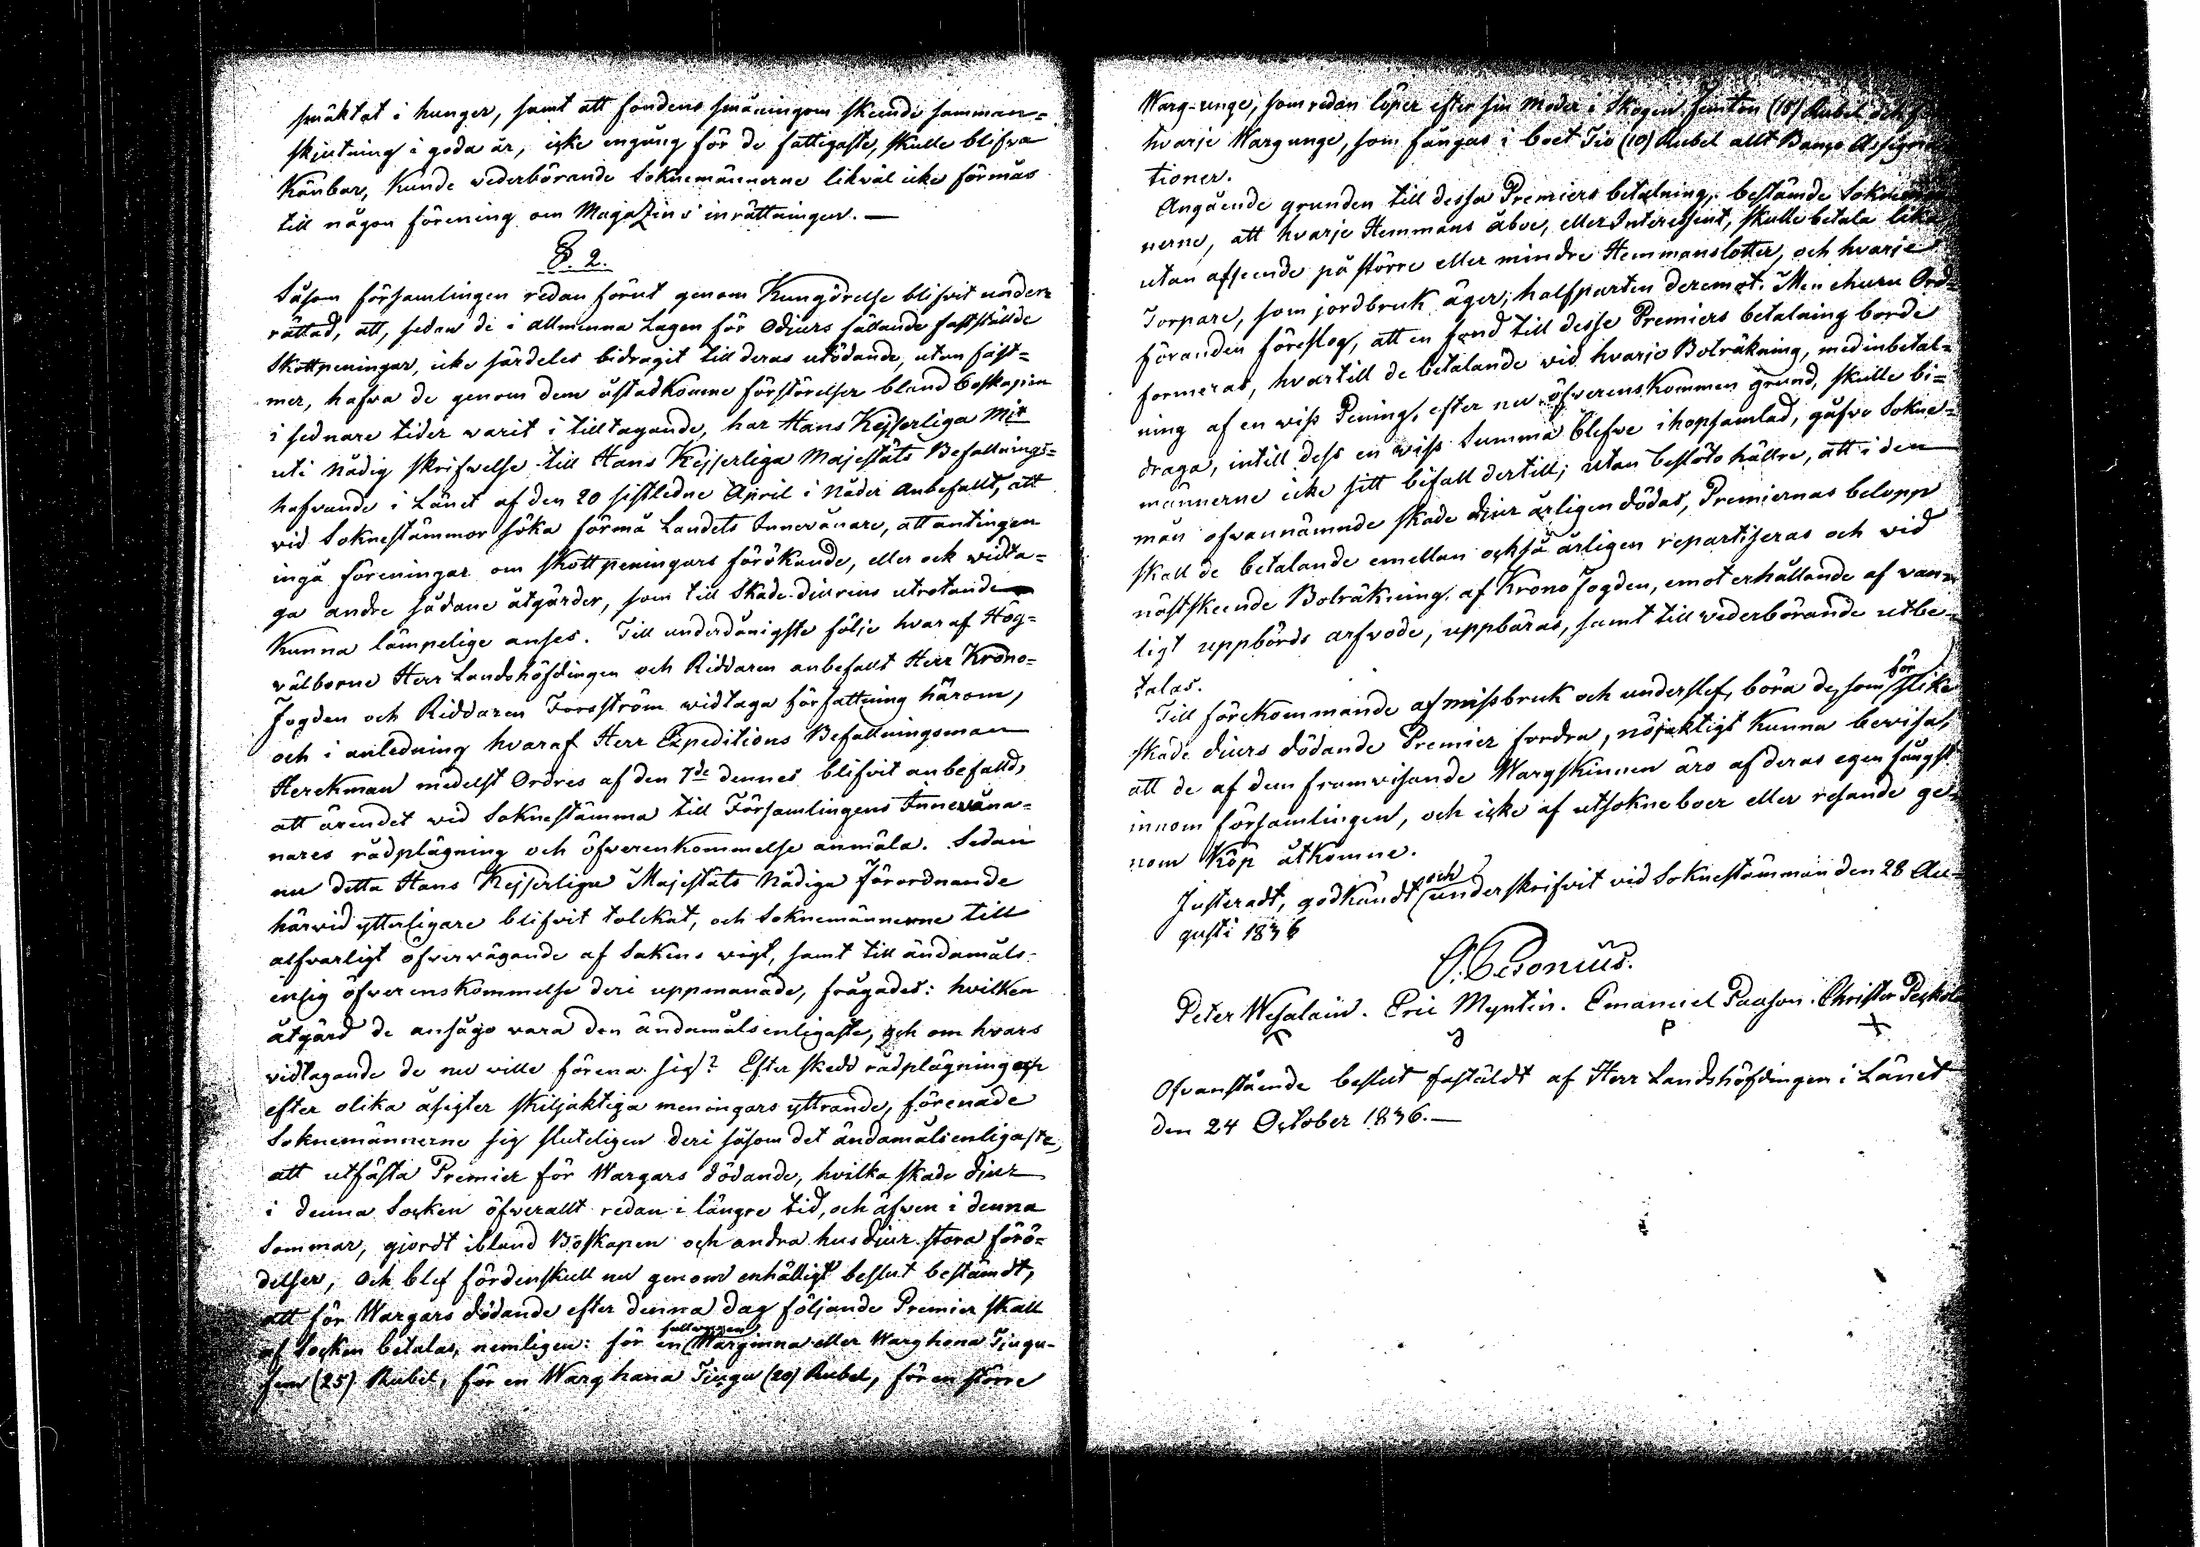 smäktat i hunger, samt att fondens småningom skeende samman=
skjutning i goda år, icke engång för de fattigaste, skulle blifva
kånbar, kunde wederbörande Soknemännerne likväl icke förmås
till någon förening om Magazins inrättningar. —
§. 2.
Såsom församlingen redan förut genom Kungörelse blifvit under=
rättad, att, sedan de i allmenna Lagen för Odjurs fällande fastställde
Skottpeningar, icke särdeles bidragit till deras utödande, utan fast=
mer, hafva de genom dem åstadkomne förstörelser bland boskapen
i sednare tider varit i tilltagande, har Hans Kejserliga Mit
uti Nådig skrifwelse till Hans Kejserliga Majestäts Befallnings=
hafvande i Länet af den 20 sistledne April i Nåder anbefallt, att
vid Soknestämmor söka förmå Landets Innevånare, att antingen
ingå föreningar om skottpeningars förökande, eller ock widta=
ga andre sådane åtgärder, som till Skade-diurens utrotande
kunna lämpelige anses. Till underdånigste följe hvaraf Hög=
wälborne Herr Landshöfdingen och Riddaren anbefallt Herr Krono=
Fogden och Riddaren Forsström widtaga författning härom,
och i anledning hvaraf Herr Expeditions Befallningsman
Herckman medelst Ordres af den 7de dennes blifvit anbefalld,
att ärendet wid Soknestämma till Församlingens Innevåna=
nares rådplägning och öfverenkommelse anmäla. Sedan
nu detta Hans Kejserliga Majestäts Nådiga förordnande
härwid ytterligare blifvit tolckat, och Soknemännerne till
alfvarligt öfvervägande af Sakens wigt, samt till ändamåls=
enlig öfverenskommelse deri uppmanade, frågades: hvilken
åtgärd de ansågo vara den ändamålsenligaste, och om hvars
vidtagande de nu ville förena sig? Efter skedd rådplägning och
efter olika åsigter skiljaktiga meningars yttrande, förenade
Soknemännerne sig sluteligen deri såsom det ändamålsenligaste,
att utfästa Premier för Wargars dödande, hvilka skade djur
i denna Socken öfverallt redan i längre tid, och äfven i denna
Sommar, gjordt ibland Boskapen och andra husdjur stora förö=
delser, Och blef fördenskull nu genom enhälligt beslut bestämdt,
att för Wargars dödande efter denna dag följande Premier skall
af Socken betalas, nemligen: för en fullvuxen Warginna eller Warg hona Tjugu-
fem (25) Rubel, för en Warg hana Tjugu (20) Rubel, för en större
Warg-unge, som redan löper efter sin moder i Skogen Femton (15) Rubel och för
hvarje Warg unge, som fångas i boet Tio (10) Rubel allt Banco Assigna
tioner.
Angående grunden till dessa Premiers betalning, bestämde Soknemän
nerne, att hvarje Hemmans åboe, eller Interessent, skulle betala lika
utan afseende på större eller mindre Hemmanslotter, och hvarje
Torpare, som jordbruk äger, halfparten deremot. Men ehuru Ord=
föranden föreslog, att en fond till desse Premiers betalning borde
formeras, hvartill de betalande wid hvarje Bolräkning, med inbetal=
ning af en wiss Pening, efter nu öfverenskommen grund, skulle bi=
draga, intill dess en wiss Summa blefve ihopsamlad, gåfvo Sokne=
männerne icke sitt bifall dertill; utan beslöto hällre, att i den
mån ofvannämnde skade djur årligen dödas, Premiernas belopp
skall de betalande emellan också årligen repartiseras och wid
nästskeende Bolräkning, af Krono Fogden, emot erhållande af van=
ligt uppbörds arfvode, uppbäras, samt till wederbörande utbe=
talas.
Till förekommande af missbruk och underslef, böra de, som för slika
skade djurs dödande Premier fordra, nöjaktigt kunna bevisa,
att de af dem framvisande Wargskinnen äro af deras egen fångst
innom församlingen, och icke af utsokneboer eller resande ge=
nom köp åtkomne.
Justeradt, godkändt och underskrifvit vid Soknestämman den 28 Au=
gusti 1836
Peter Wesalain. Eric Myntin. Emanuel Paason. Christer
Ofvanstående beslut fastäldt af Herr Landshöfdingen i Länet
den 24 October 1836. —